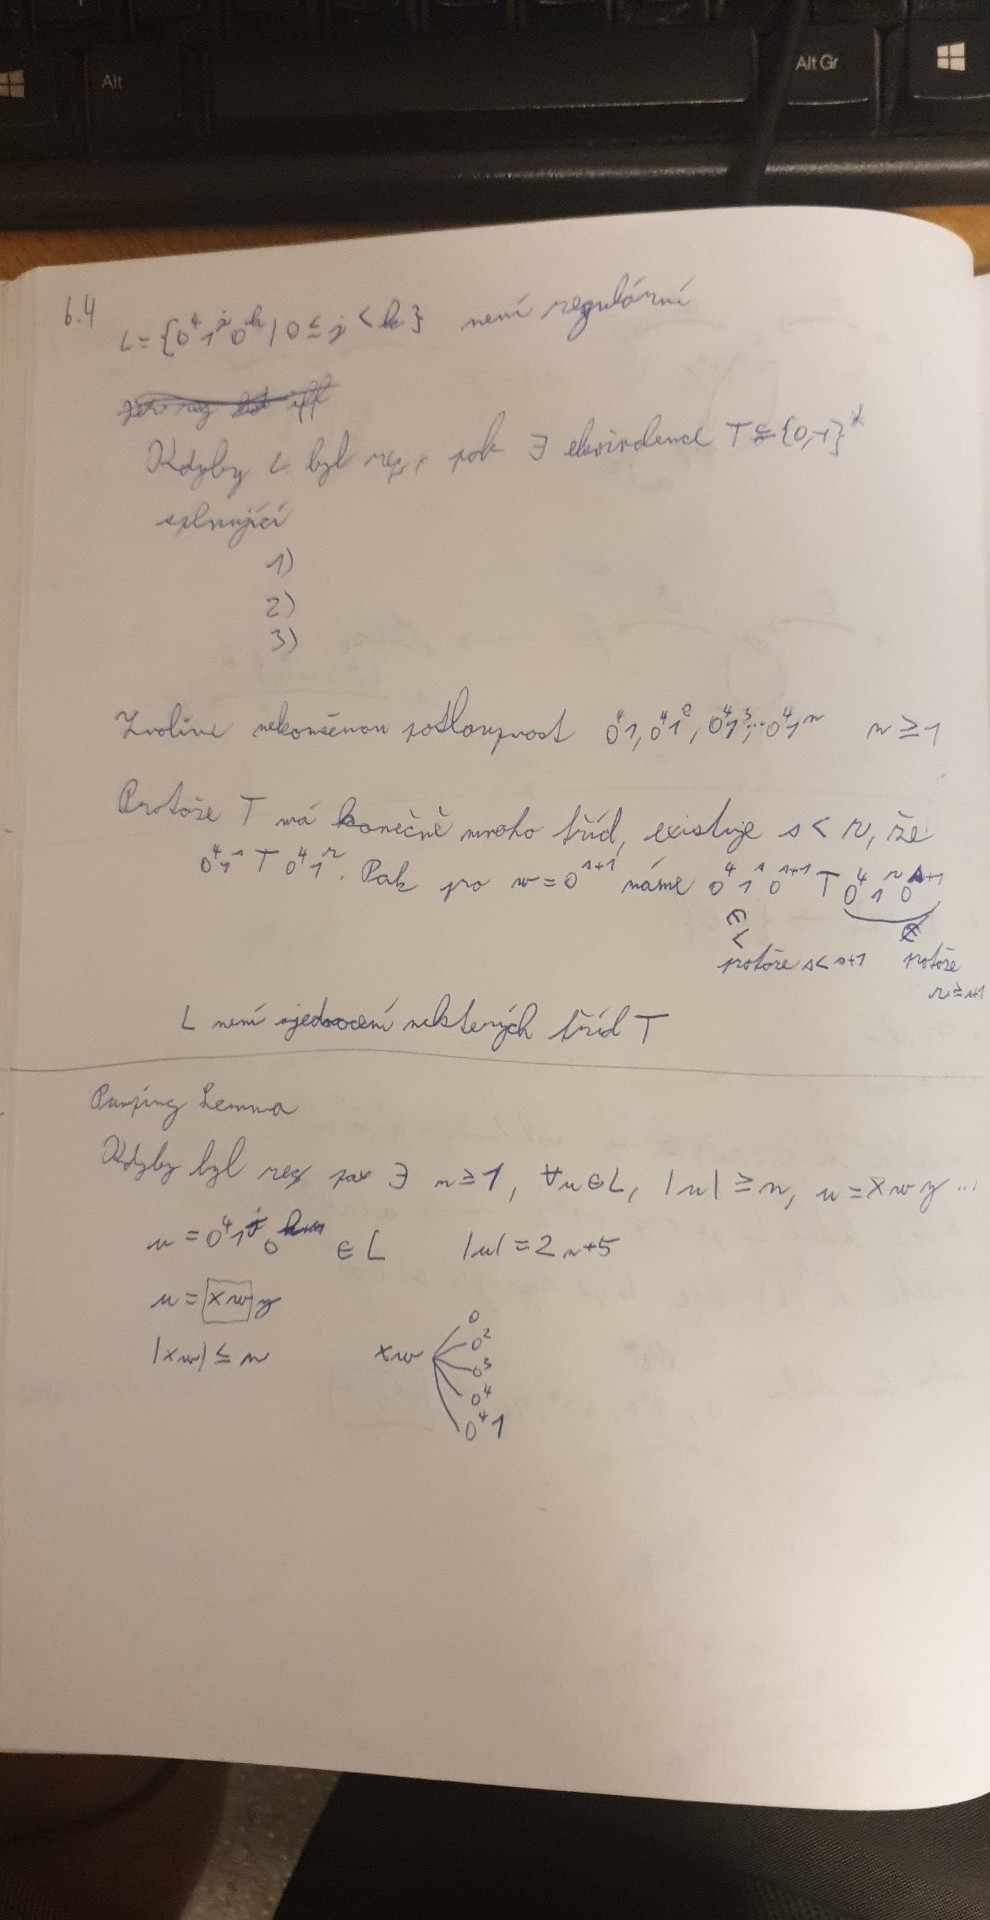 Alt
Alt Gr
6.4
L = {0⁴1ʲ0ᵏ | 0 ≤ j < k} není regulární
Kdyby L byl reg., pak ∃ ekvivalence T {0,1}*
splnující
1)
2)
3)
Zvolíme nekonečnou posloupnost 0⁴1, 0⁴1², 0⁴1³, ... 0⁴1ⁿ n ≥ 1
Protože T má konečně mnoho tříd, existuje s < r, že
0⁴1ˢ T 0⁴1ʳ. Pak pro w = 0ˢ⁺¹ máme 0⁴1ˢ0ˢ⁺¹ T 0⁴1ʳ0ˢ⁺¹
∈ L ∉
protože s < s+1 protože
r ≥ s+1
L není sjednocení některých tříd T
Pumping Lemma
Kdyby byl reg pak ∃ n ≥ 1, ∀u ∈ L, |u| ≥ n, u = xwy ...
u = 0⁴1 0 ∈ L |u| = 2n+5
u = xwy
|xw| ≤ n xw 0
0²
0³
0⁴
0⁴1